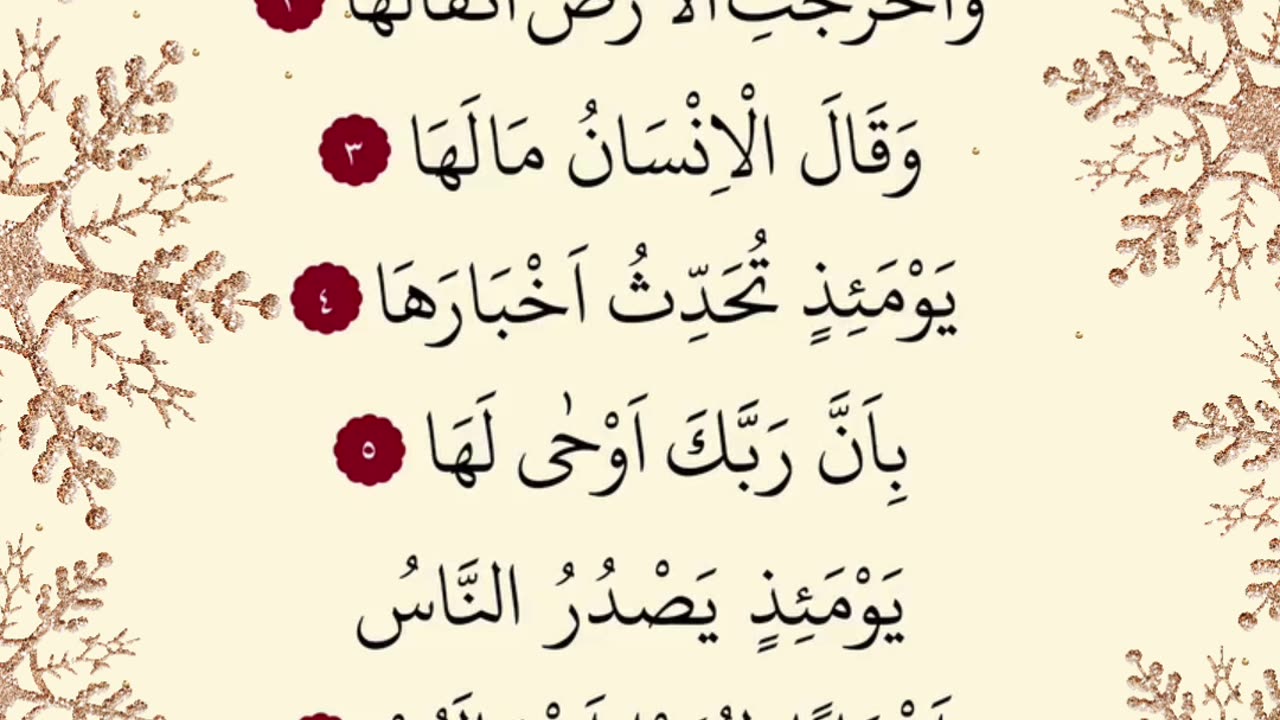 وَاَخْرَجَتِ الْاَرْضُ اَثْقَالَهَا ٢
وَقَالَ الْاِنْسَانُ مَالَهَا ٣
يَوْمَئِذٍ تُحَدِّثُ اَخْبَارَهَا ٤
بِاَنَّ رَبَّكَ اَوْحٰى لَهَا ٥
يَوْمَئِذٍ يَصْدُرُ النَّاسُ